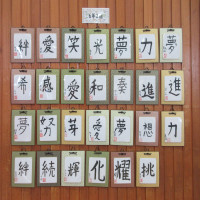 絆 愛 笑 光 夢 力 夢
希 感 愛 和 奏 進 進
夢 努 芽 愛 夢 想 力
絆 続 輝 化 耀 挑